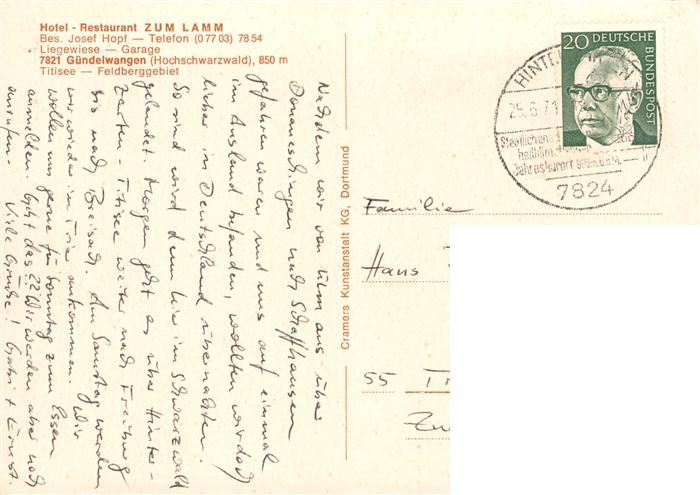 Hotel - Restaurant ZUM LAMM
Bes. Josef Hopf — Telefon (0 77 03) 78 54
Liegewiese — Garage
7821 Gündelwangen (Hochschwarzwald), 850 m
Titisee — Feldberggebiet
Nachdem wir von Ulm aus über
Donaueschingen nach Schaffhausen
gefahren waren und uns auf einmal
im Ausland befanden, wollten wir doch
lieber in Deutschland übernachten.
So sind wir denn hier im Schwarzwald
gelandet. Morgen geht es über Hinter-
zarten - Titisee weiter nach Freiburg
bis nach Breisach. Am Samstag werden
wir wieder in Trier ankommen. Wir
wollen uns gerne für Sonntag zum Essen
anmelden. Geht das?? Wir werden aber noch
anrufen. Viele Grüße! Gabi + Ernst.
Cramers Kunstanstalt KG, Dortmund
20 DEUTSCHE BUNDESPOST
HINTE
25.6.71
Jahreskurort
7824
Familie
Hans
55 T